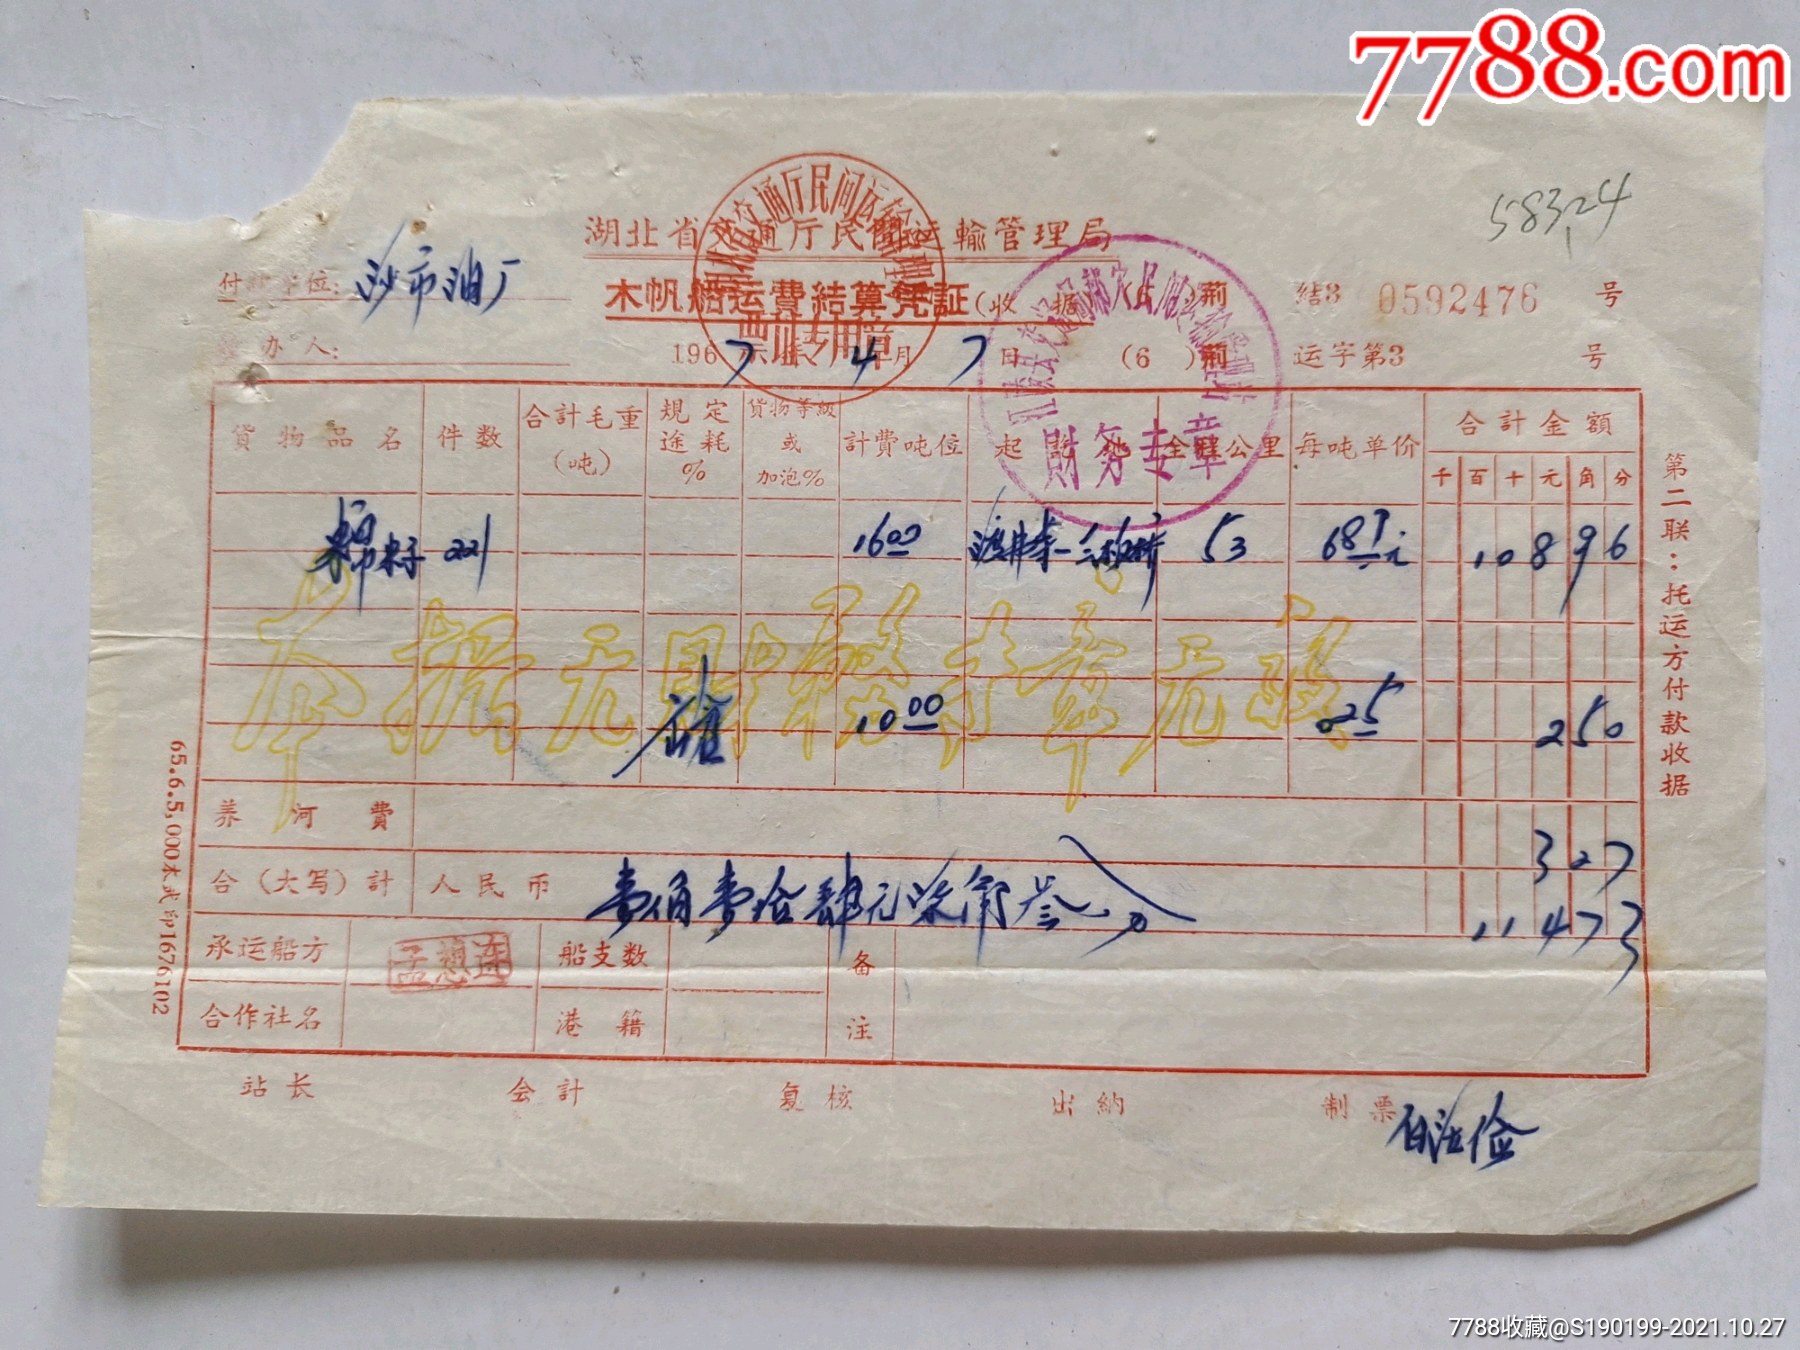 7788.com
58324
湖北省交通厅民間运輸管理局
付款单位: 沙市油厂
木帆船运費結算凭証(收 据) 荊 結3 0592476 号
经办人:
1967年4月7日 (6 )荊 运字第3 号
湖北省交通厅民间运输管理局
票证专用章
財务专章
貨物品名 件数 合計毛重(吨) 規定途耗% 貨物等級或加泡% 計費吨位 起 訖 地 全程公里 每吨单价 合計金額
千 百 十 元 角 分
棉籽 221 1600 53 681元 108 9 6
本据无財务专章无效
1000 025 2 5 0
养 河 費 3 2 7
合(大写)計 人民币 壹佰壹拾肆元柒角叁分 114 7 3
承运船方 孟想连 船支数 备
合作社名 港 籍 注
站长 会計 复核 出納 制票
第二联:托运方付款收据
65.6.5,000本武印1676102
7788收藏@S190199-2021.10.27